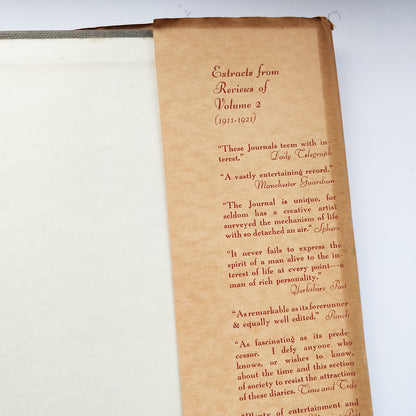 Extracts from
Reviews of
Volume 2
(1911-1921)
"These Journals teem with in-
terest." Daily Telegraph
"A vastly entertaining record."
Manchester Guardian
"The Journal is unique, for
seldom has a creative artist
surveyed the mechanism of life
with so detached an air." Sphere
"It never fails to express the
spirit of a man alive to the in-
terest of life at every point—a
man of rich personality."
Yorkshire Post
"As remarkable as its forerunner
& equally well edited." Punch
"As fascinating as its prede-
cessor. I defy anyone who
knows, or wishes to know,
about the time and this section
of society to resist the attraction
of these diaries. Time and Tide
"Plenty of entertainment and